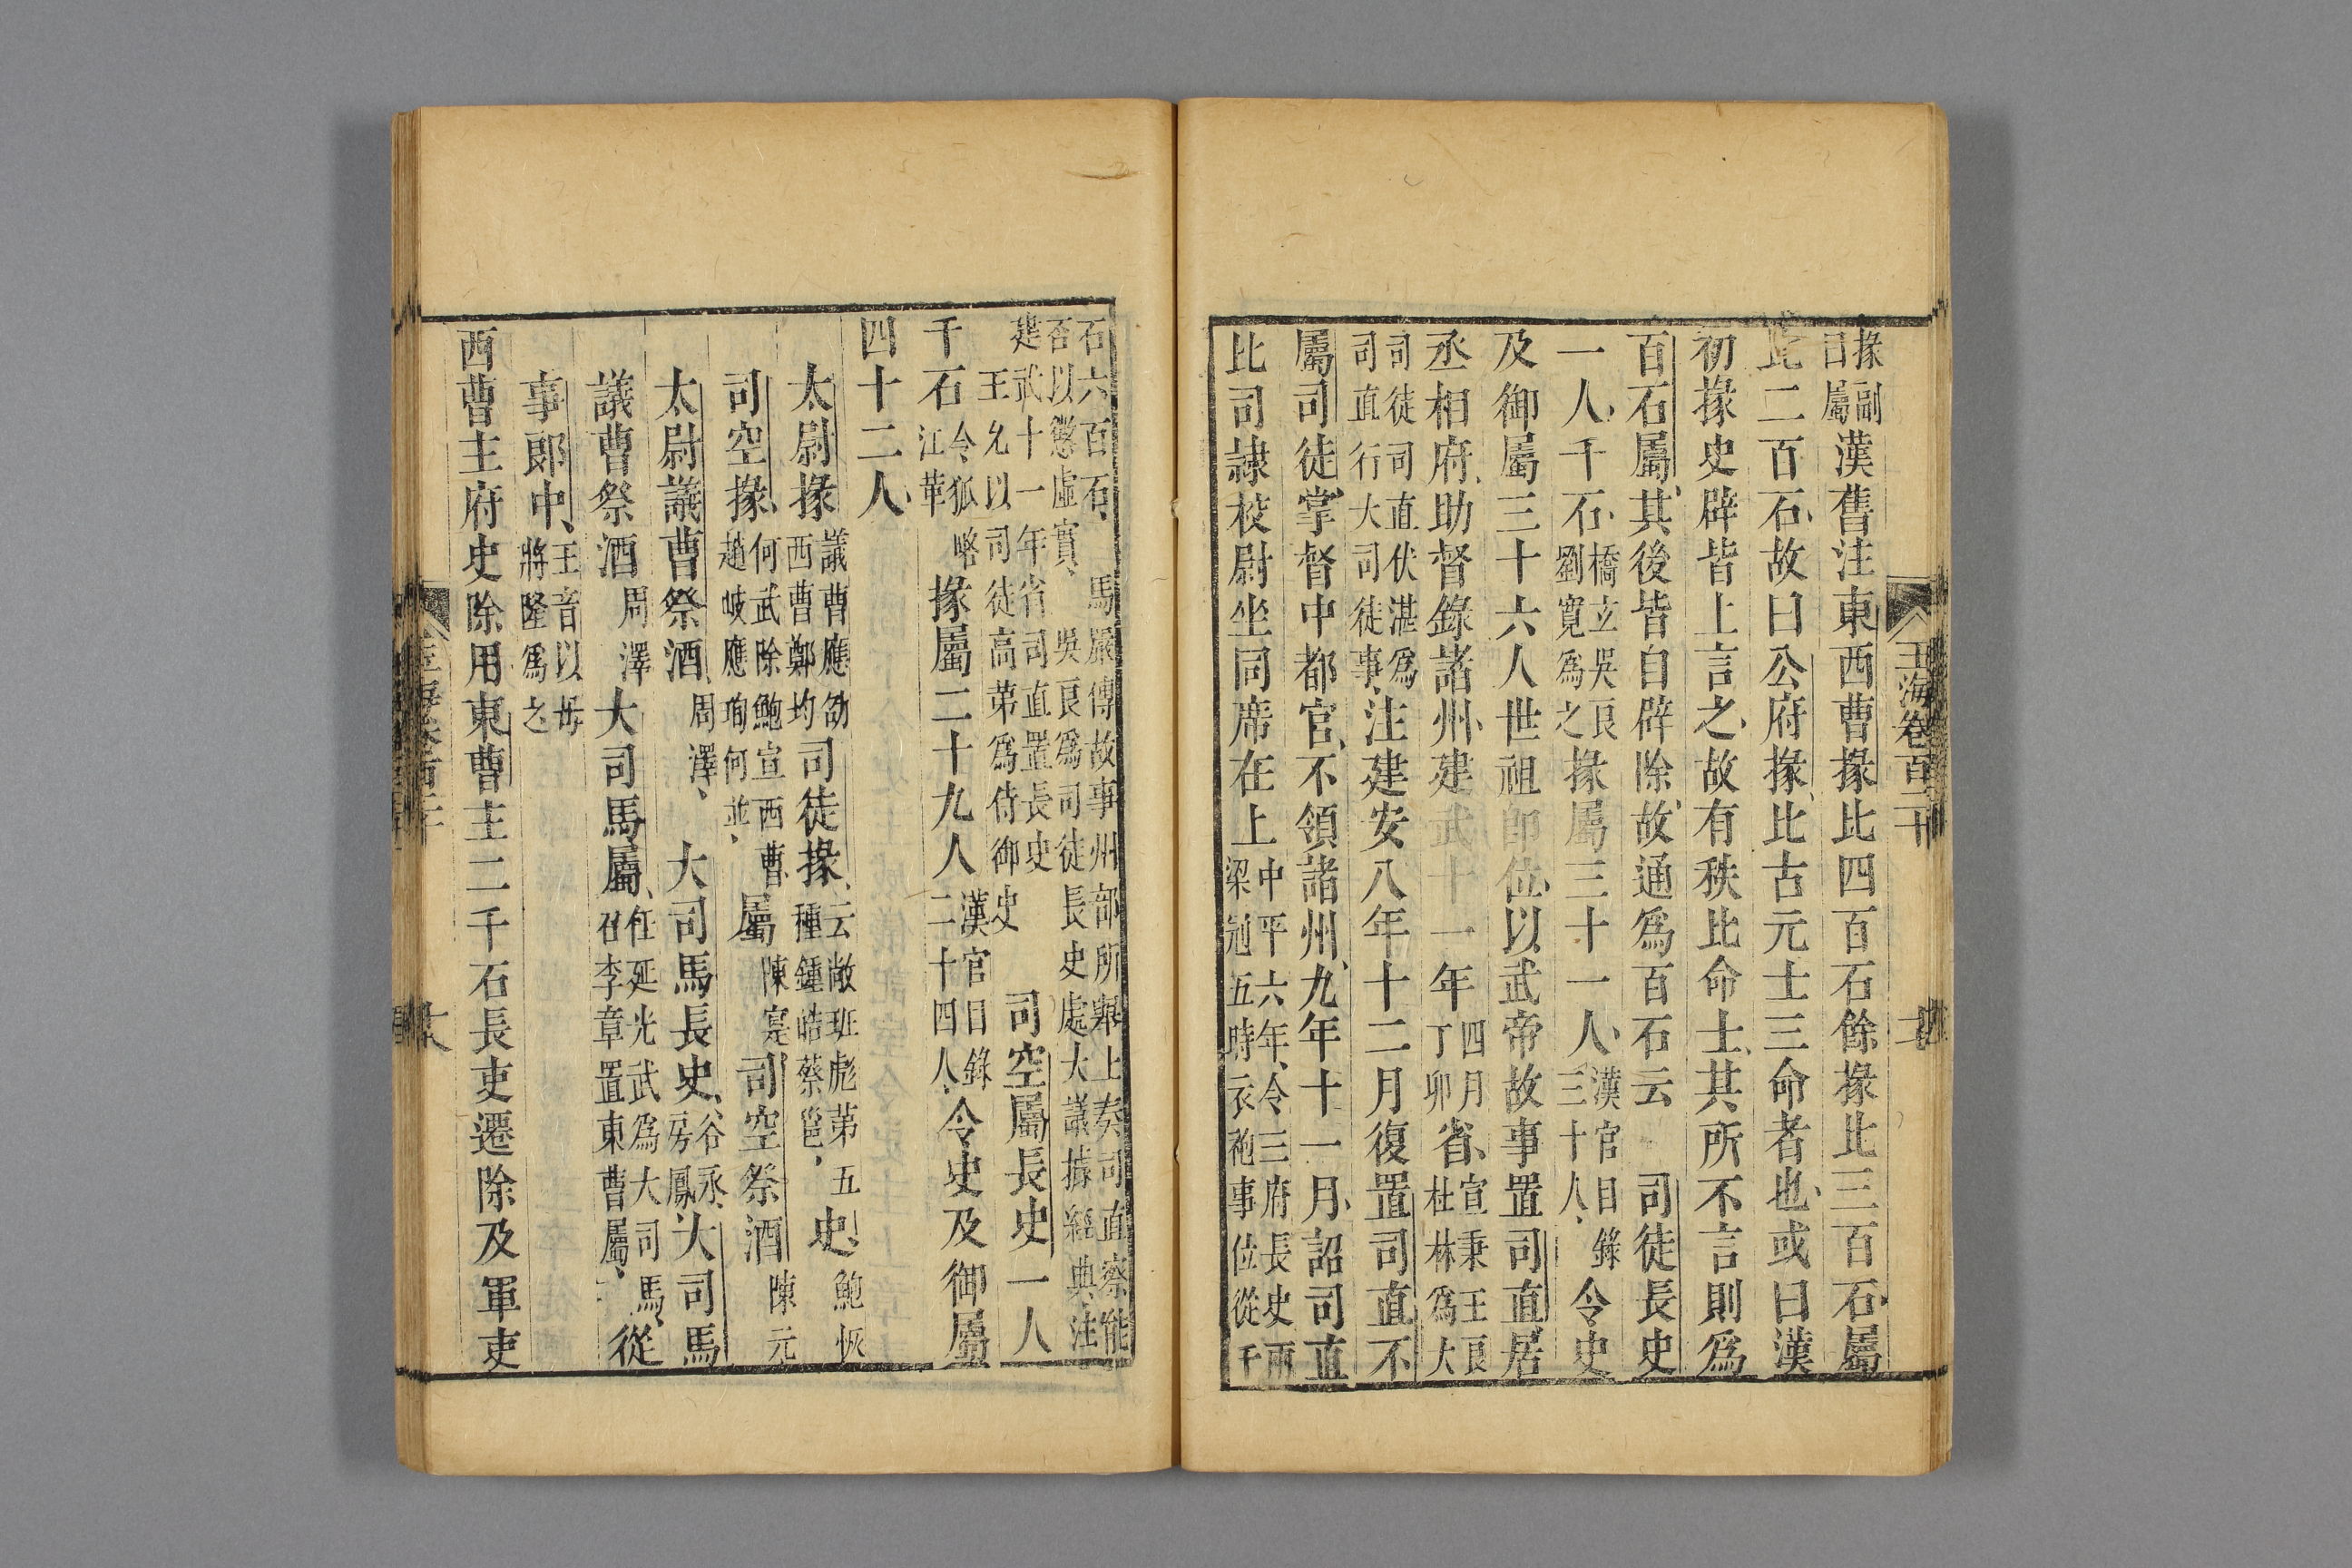 掾副
曰屬
漢舊注東西曹掾比四百石餘掾比三百石屬
比二百石故曰公府掾比古元士三命者也或曰漢
初掾史辟皆上言之故有秩比命士其所不言則爲
百石屬其後皆自辟除故通爲百石云　司徒長史
一人千石
橋立吳良
劉寬爲之
掾屬三十一人
漢官目錄
三十人
令史
及御屬三十六人世祖卽位以武帝故事置司直居
丞相府助督錄諸州建武十一年
四月
丁卯
省
宣秉王良
杜林爲大
司徒司直伏湛爲
司直行大司徒事
注建安八年十二月復置司直不
屬司徒掌督中都官不領諸州九年十一月詔司直
比司隷校尉坐同席在上
中平六年令三府長史兩
梁冠五時衣袍事位從千
石六百石　馬嚴傳故事州部所舉上奏司直察能
否以懲虛實　吳良爲司徒長史處大議據經典注
建武十一年省司直置長史
王允以司徒高第爲侍御史
司空屬長史一人
千石
令狐略
江華
掾屬二十九人
漢官目錄
二十四人
令史及御屬
四十二人
太尉掾
議曹應劭
西曹鄭均
司徒掾
云敞班彪第五
種鍾皓蔡邕
史
鮑恢
司空掾
何武除鮑宣西曹
趙岐應珣何並
屬
陳寔
司空祭酒
陳元
太尉議曹祭酒
周澤
大司馬長史
谷永
房鳳
大司馬
議曹祭酒
周澤
大司馬屬
任延光武爲大司馬
召李章置東曹屬
從
事郎中
王音以毋
將隆爲之
西曹主府史除用東曹主二千石長吏遷除及軍吏
玉海卷百二十